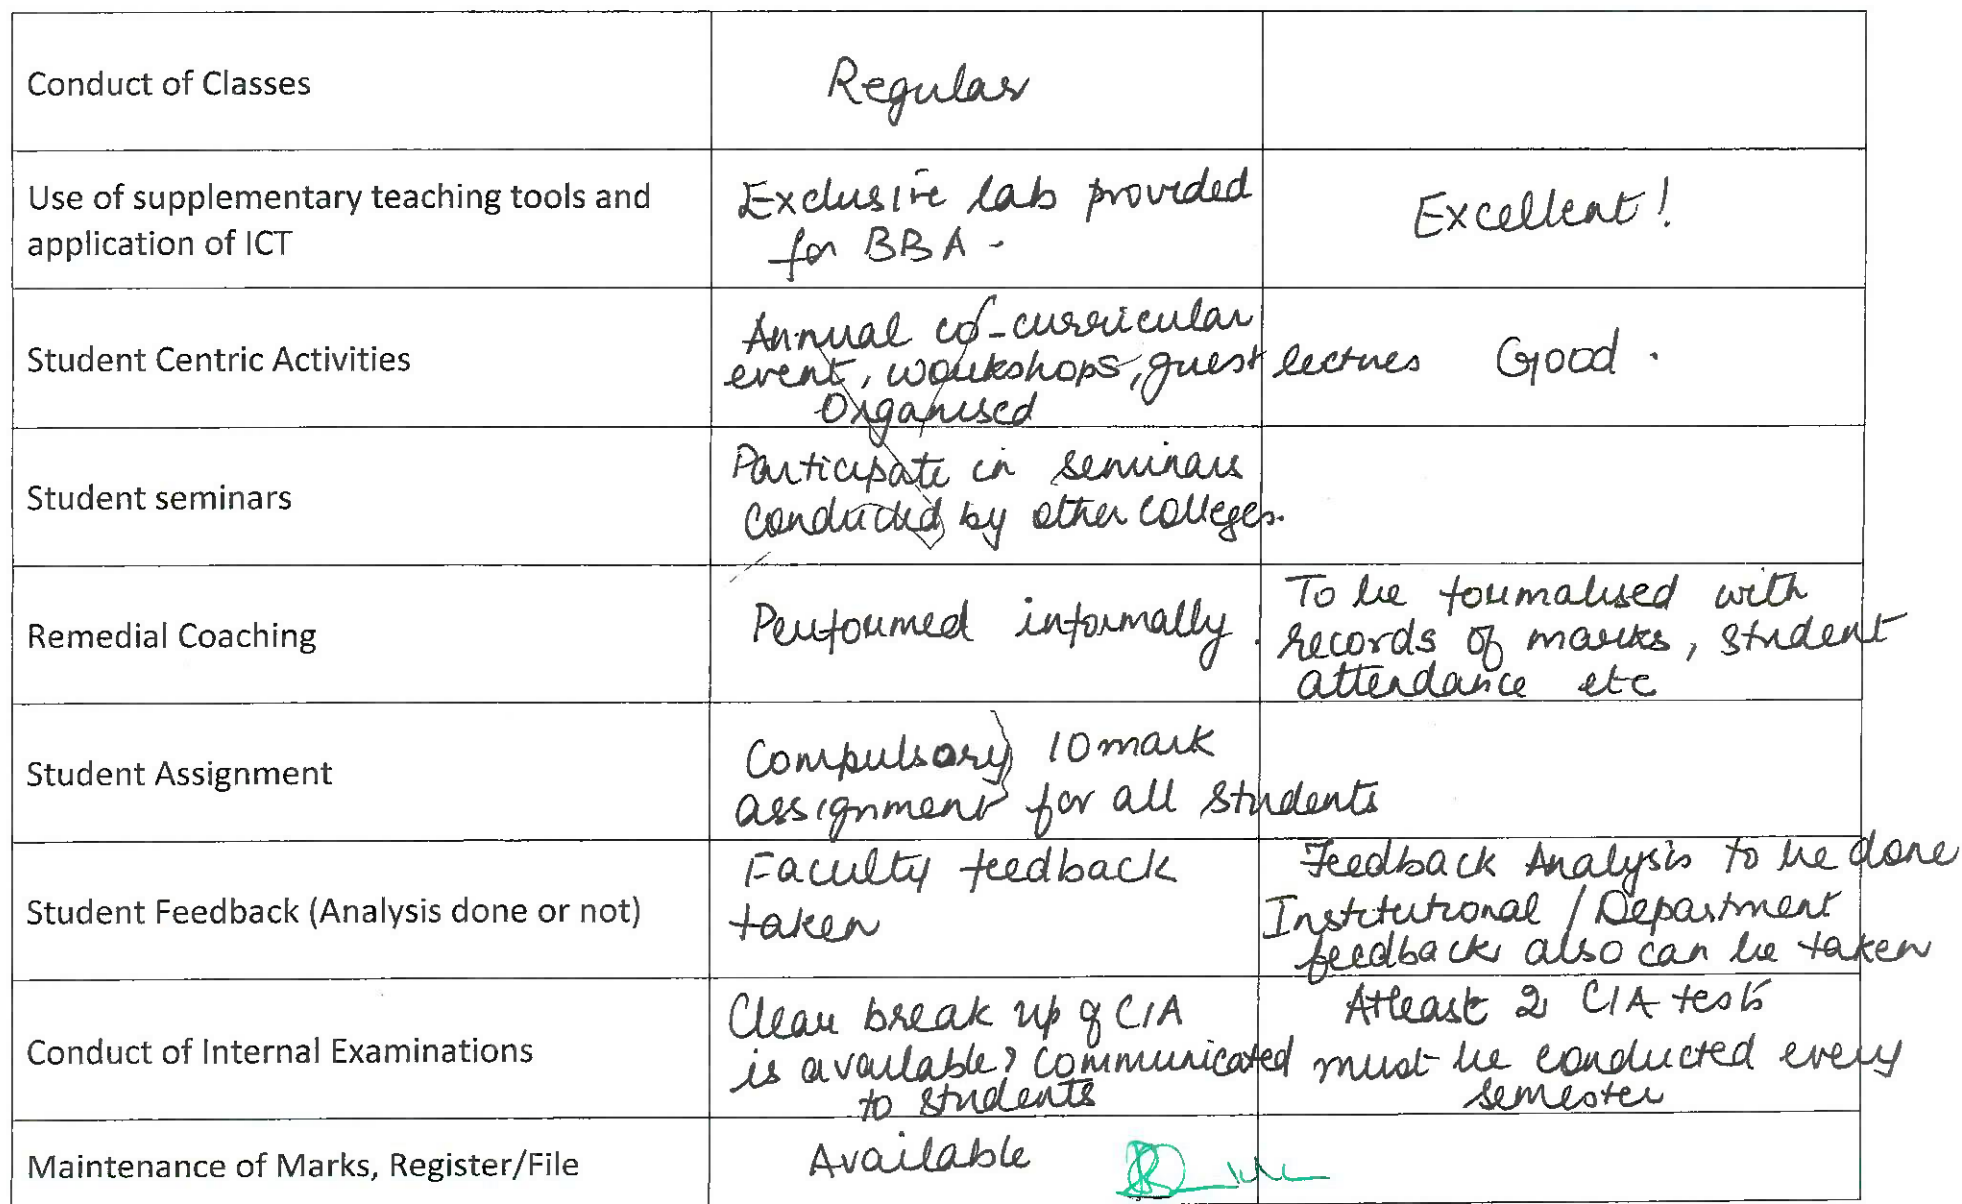 Conduct of Classes
Regular
Use of supplementary teaching tools and
application of ICT
Exclusive lab provided
for BBA -
Excellent!
Student Centric Activities
Annual co-curricular
event, workshops, guest lectures
Organised
Good.
Student seminars
Participate in seminars
conducted by other colleges.
Remedial Coaching
Performed informally.
To be formalised with
records of marks, student
attendance etc
Student Assignment
Compulsory 10 mark
assignment for all students
Student Feedback (Analysis done or not)
Faculty feedback
taken
Feedback Analysis to be done
Institutional / Department
feedback also can be taken
Conduct of Internal Examinations
Clear break up of CIA
is available & communicated
to students
Atleast 2 CIA tests
must be conducted every
semester
Maintenance of Marks, Register/File
Available